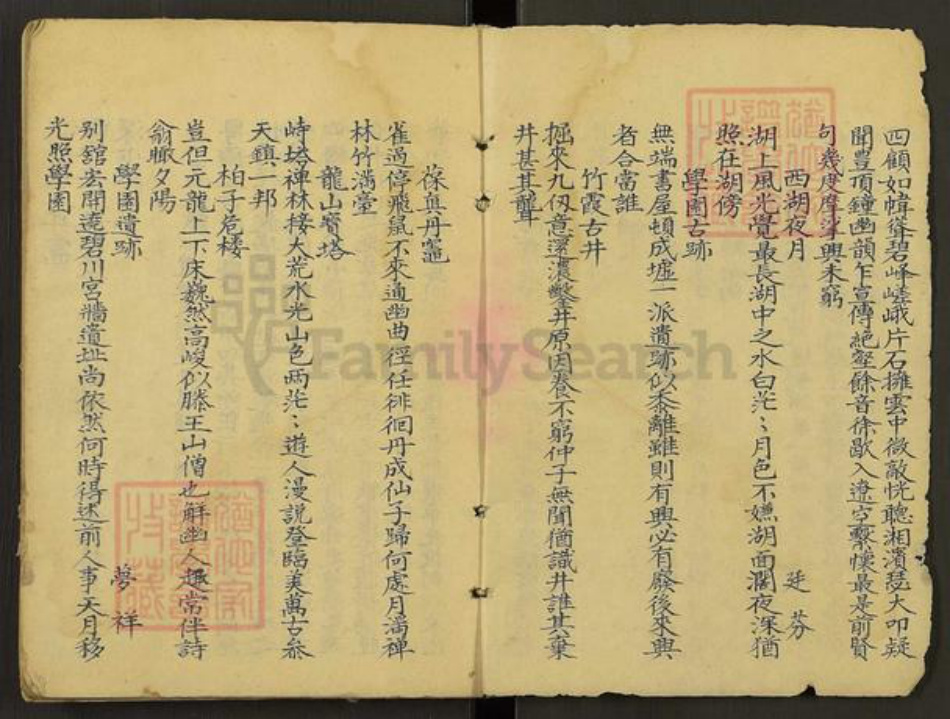 四顧如幃聳碧峰嵯峨片石擁雲中微敲恍聽湘濱瑟大叩疑
聞豐頂鐘幽韻乍宣傳絕壑餘音徐歇入遼空繫懷最是前賢
句幾度摩挲興未窮
西湖夜月
廷芬
湖上風光覺最長湖中之水白茫〻月色不嫌湖面濶夜深猶
照在湖傍
學圃古跡
無端書屋頓成墟一派遺跡似黍離雖則有興必有廢後來興
者合當誰
竹霞古井
掘來九仞意還濃鑿井原因養不窮仲子無聞猶識井誰其棄
井甚其聾
葆真丹竈
雀過停飛鼠不來通幽曲徑任徘徊丹成仙子歸何處月滿禪
林竹滿堂
龍山寶塔
峙塔禪林接大荒水光山色两茫〻遊人漫説登臨美萬古叅
天鎮一邦
柏子危樓
豈但元龍上下床巍然高峻似滕王山僧也解幽人趣常伴詩
翁瞰夕陽
學圃遺跡
夢祥
別舘宏開遶碧川宮牆遺址尚依然何時得述前人事天月移
光照學圃
FamilySearch